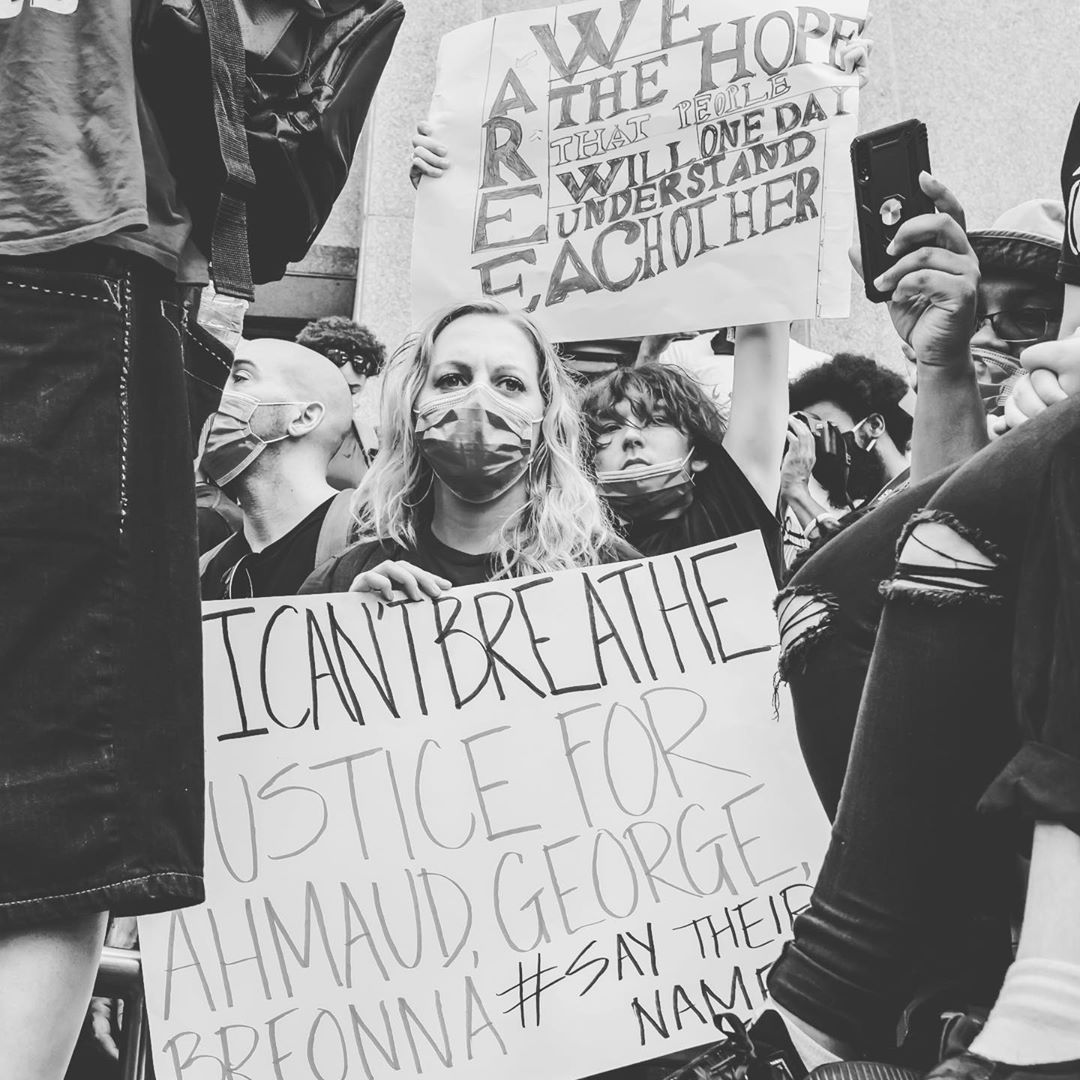 WE
ARE
THE HOPE
THAT PEOPLE
WILL ONE DAY
UNDERSTAND
EACHOTHER
I CAN'T BREATHE
USTICE FOR
AHMAUD, GEORGE,
BREONNA
#SAY THEIR
NAME